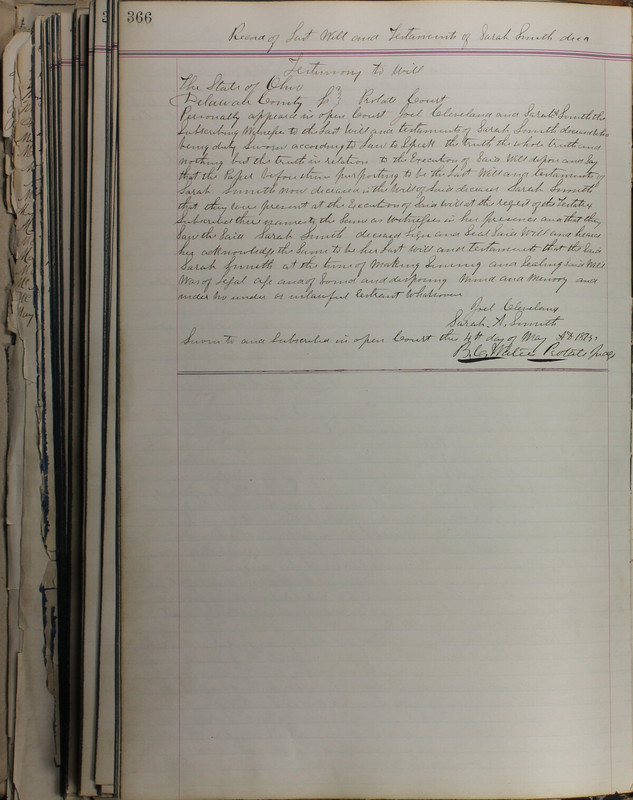 366
Record of Last Will and Testaments of Sarah Smith decd
Testimony to Will
The State of Ohio
Delaware County SS Probate Court
Personally appeared in open Court Joel Cleveland and Sarah A Smith the
Subscribing Witnesses to the Last Will and testament of Sarah Smith deceased who
being duly Sworn according to Law to Speak the truth the whole truth and
nothing but the truth in relation to the Execution of Said Will depose and Say
that the Paper before them purporting to be the Last Will and testament of
Sarah Smith now deceased is the Will of Said deceased Sarah Smith
that they were present at the Execution of Said Will at the request of the Testatrix
Subscribed their names to the Same as Witnesses in her presence and that they
Saw the Said Sarah Smith deceased Sign and Seal Said Will and heard
her acknowledge the Same to be her Last Will and testament that the Said
Sarah Smith at the time of Making Signing and Sealing Said Will
Was of legal age and of Sound and disposing Mind and Memory and
under no undue or unlawful restraint Whatsoever
Joel Cleveland
Sarah A. Smith
Sworn to and Subscribed in open Court the 4th day of May AD 1875
B.C. Waters Probate Judge